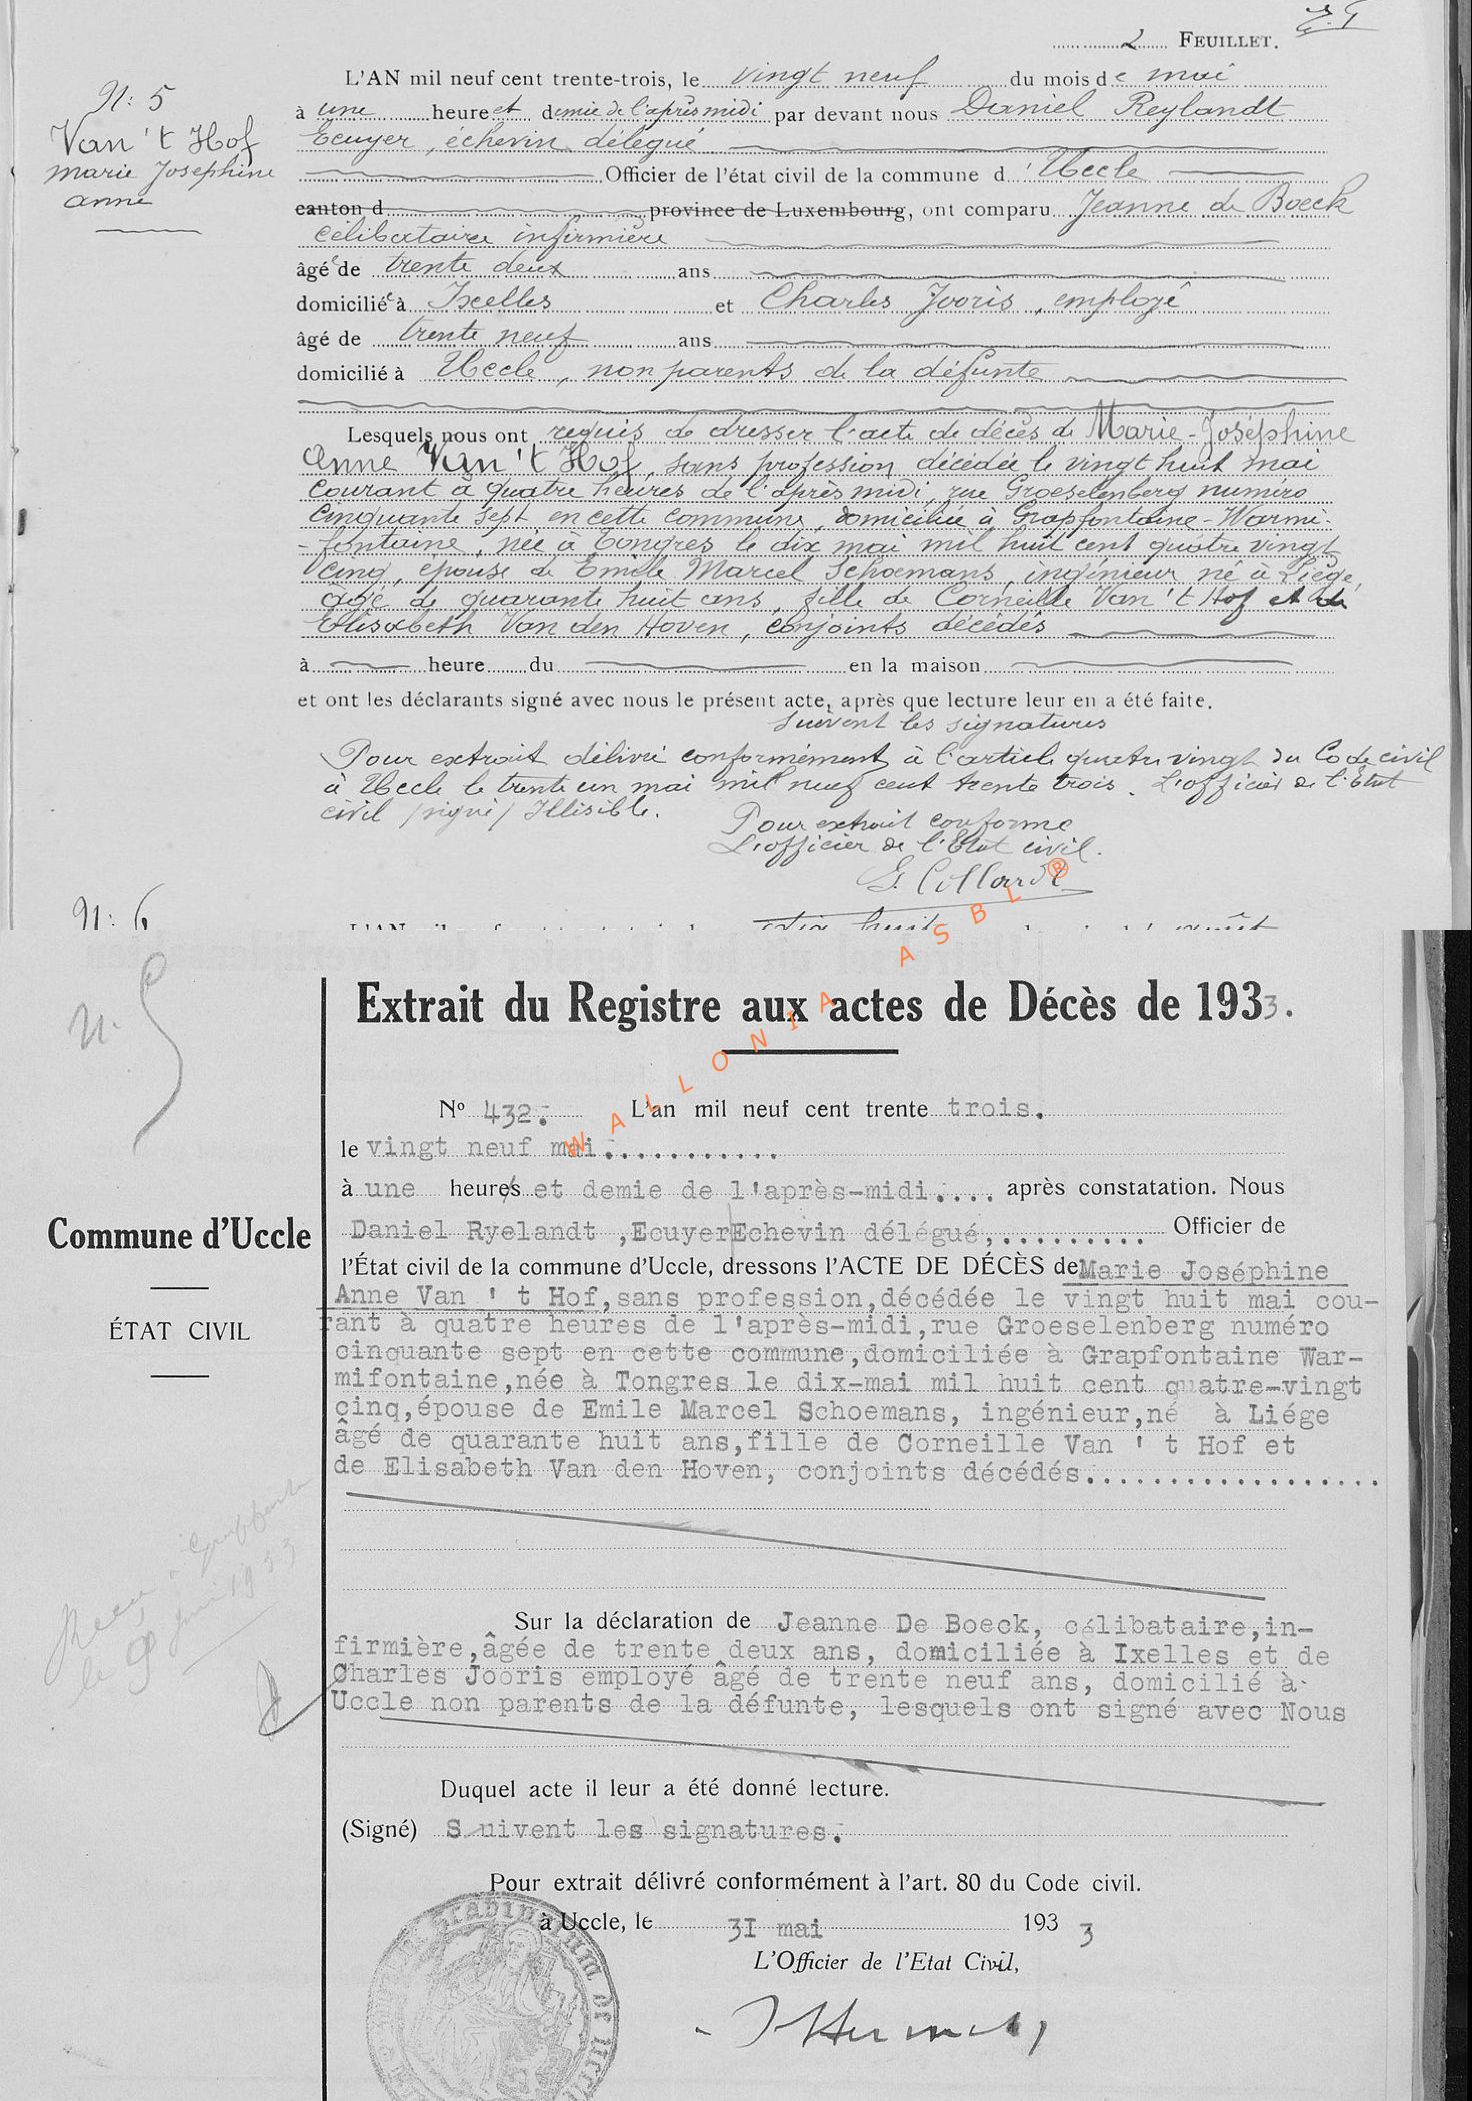 2 FEUILLET.
N: 5
Van 't Hof
marie Josephine
anne
L'AN mil neuf cent trente-trois, le vingt neuf du mois de mai
à une heure et demie de l'après midi par devant nous Daniel Reylandt
Ecuyer, échevin délégué
Officier de l'état civil de la commune d'Uccle
canton d province de Luxembourg, ont comparu Jeanne de Boeck
célibataire infirmière
âgée de trente deux ans
domiciliée à Ixelles et Charles Jooris, employé
âgé de trente neuf ans
domicilié à Uccle, non parents de la défunte
Lesquels nous ont requis de dresser l'acte de décès de Marie-Joséphine
Anne Van 't Hof, sans profession décédée le vingt huit mai
courant à quatre heures de l'après midi, rue Groeselenberg numéro
cinquante sept en cette commune, domiciliée à Grapfontaine-Warmi-
-fontaine, née à Tongres le dix mai mil huit cent quatre vingt
cinq, épouse de Emile Marcel Schoemans, ingénieur né à Liège,
âgé de quarante huit ans, fille de Corneille Van 't Hof et de
Elisabeth Van den Hoven, conjoints décédés
à heure du en la maison
et ont les déclarants signé avec nous le présent acte, après que lecture leur en a été faite.
Suivent les signatures
Pour extrait délivré conformément à l'article quatre vingt du Code civil
à Uccle le trente un mai mil neuf cent trente trois. L'officier de l'Etat
civil /signé/ Illisible.
Pour extrait conforme
L'officier de l'Etat civil.
G. Collard
N: 6
L'AN dix huit août
WALLONIA ASBL ®
N. 5
Extrait du Registre aux actes de Décès de 1933.
N° 432. L'an mil neuf cent trente trois.
le vingt neuf mai...........
à une heures et demie de l'après-midi.... après constatation. Nous
Daniel Ryelandt ,Ecuyer Echevin délégué,......... Officier de
Commune d'Uccle
ÉTAT CIVIL
l'État civil de la commune d'Uccle, dressons l'ACTE DE DÉCÈS de Marie Joséphine
Anne Van ' t Hof,sans profession,décédée le vingt huit mai cou-
rant à quatre heures de l'après-midi,rue Groeselenberg numéro
cinquante sept en cette commune,domiciliée à Grapfontaine War-
mifontaine,née à Tongres le dix-mai mil huit cent quatre-vingt
cinq,épouse de Emile Marcel Schoemans, ingénieur,né à Liége
âgé de quarante huit ans,fille de Corneille Van ' t Hof et
de Elisabeth Van den Hoven, conjoints décédés..................
Reçu à Grapfontaine
le 9 juin 1933
Sur la déclaration de Jeanne De Boeck, célibataire,in-
firmière,âgée de trente deux ans, domiciliée à Ixelles et de
Charles Jooris employé âgé de trente neuf ans, domicilié à
Uccle non parents de la défunte, lesquels ont signé avec Nous
Duquel acte il leur a été donné lecture.
(Signé) S uivent les signatures.
Pour extrait délivré conformément à l'art. 80 du Code civil.
à Uccle, le 3I mai 193 3
L'Officier de l'Etat Civil,